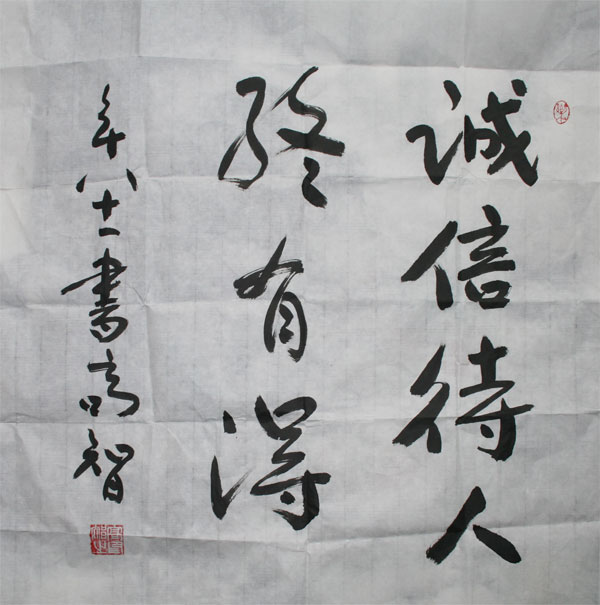 诚信待人
终有得
年八十一書高智